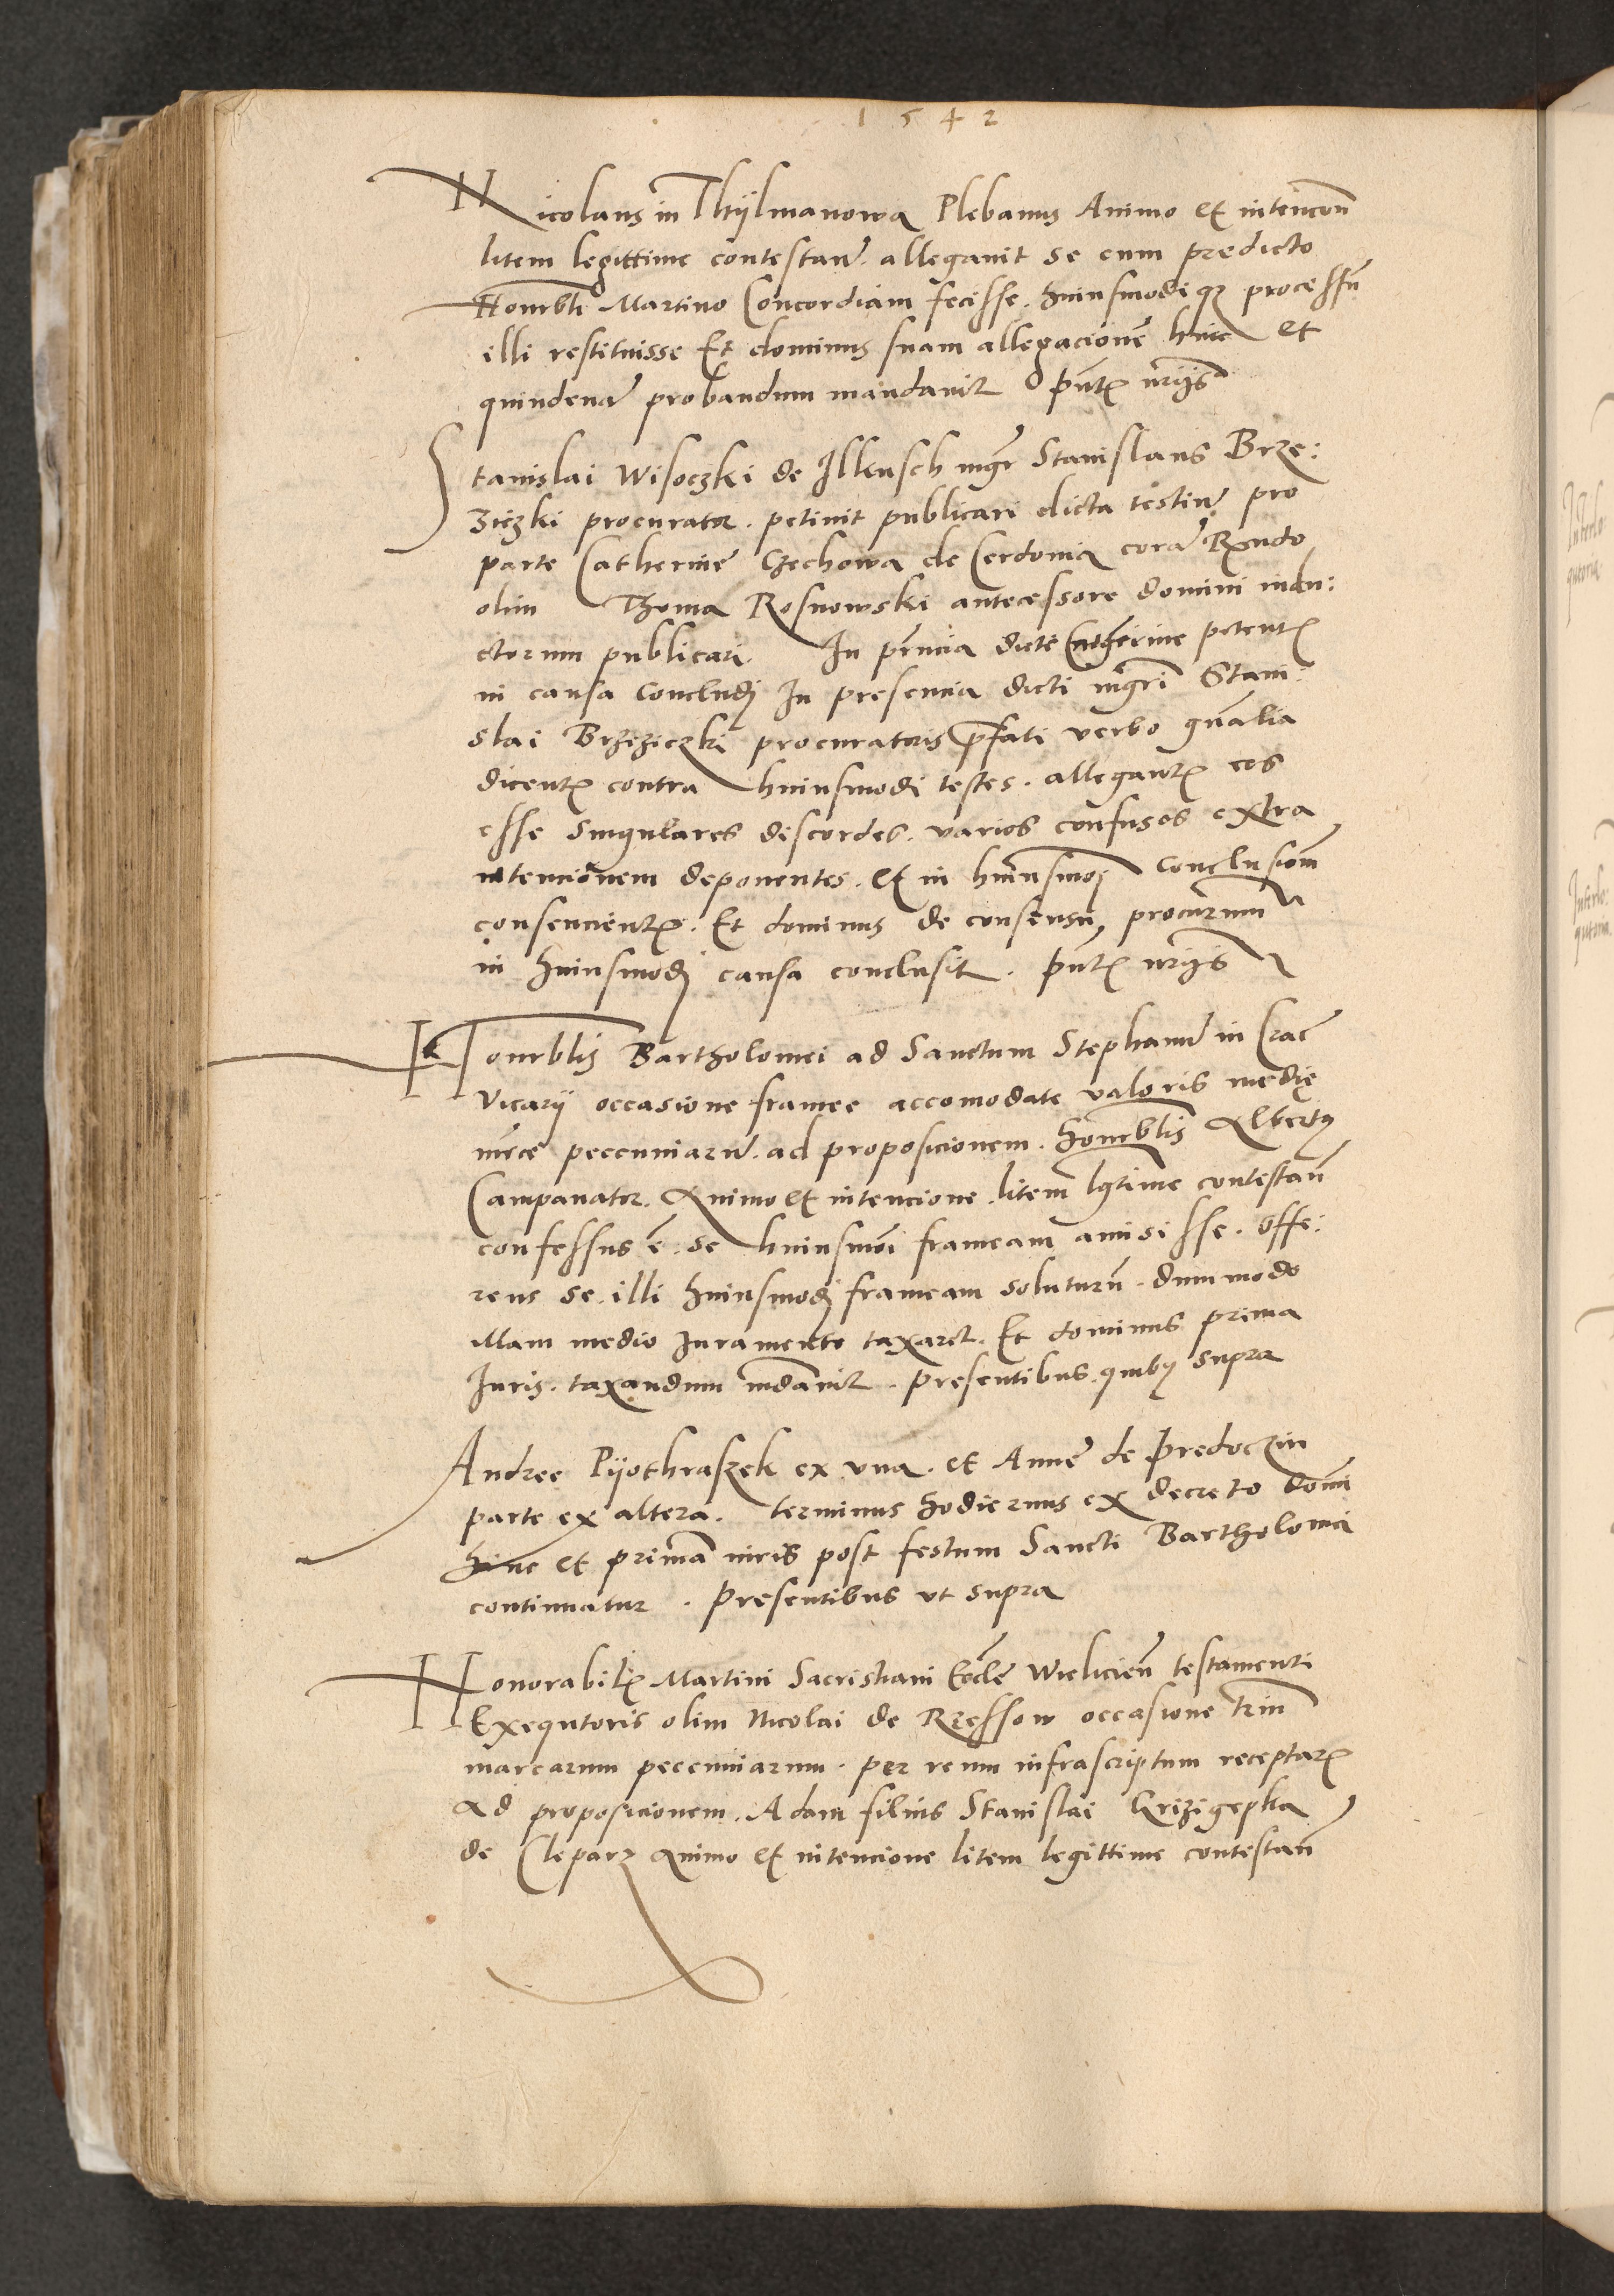 1542
Nicolaus in Thylmanowa Plebanus Animo et intencōn
litem legittime contestan̄. allegauit se cum predicto
Honrbli Martino Concordiam fecisse. huiusmodi qȝ processū
illi restituisse Et dominus suam allegacionē hinc et
quindenā probandum mandauit pn̄t nr̄ijs
Stanislai Wisoczki de Ilkusch mgr̄ Stanislaus Brze:
ziczki procurator. petiuit publicari dicta testiū pro
parte Catherine Czechowa de Cerdonia corā Rn̄do
olim Thoma Rosnowski antecessore domini indu:
ctorum publicari. In pn̄cia dicte Catherine petent
in causa concludj In presencia dicti mgr̄i Stani:
slai Brziziczki procuratoris p̄fati verbo gn̄alia
dicent contra huiusmodi testes. allegant eos
esse singulares discordes. varios confusos extra
intencionem deponentes. et in huiusmoj conclusiom̄
consencient. Et dominus de consensu procur̄um
in huiusmodj causa conclusit. pn̄t nr̄ijs
Honrblis Bartholomei ad Sanctum Stephanū in Crac̄
vicarij occasione framee accomodate valoris medie
mr̄ce peccuniarū. ad proposicionem. honrblis Albertꝰ
Campanator. Animo et intencione litem lgtime contestan̄
confessus ē. se huiusmōi frameam amisisse. offe:
rens se. illi huiusmodj frameam soluturū. dummodo
illam medio Iuramento taxaret. Et dominus prima
Iuris. taxandum mdauit. presentibus. quibꝰ supra
Andree Pyothraszek ex vna. et Anne de Predoczin
parte ex altera. terminus hodiernus ex decreto domi
hinc et primā iuris post festum Sancti Bartholomei
continuatur. Presentibus vt supra
Honorabil Martini Sacristiani Eccle Wieliciēn testamenti
Exequtoris olim Nicolai de Rzessow occasione triū
marcarum peccuniarum. per reum infrascriptum receptar
ad proposicionem. Adam filius Stanislai Krizigepka
de Cleparz Animo et intencione litem legittime contestan̄